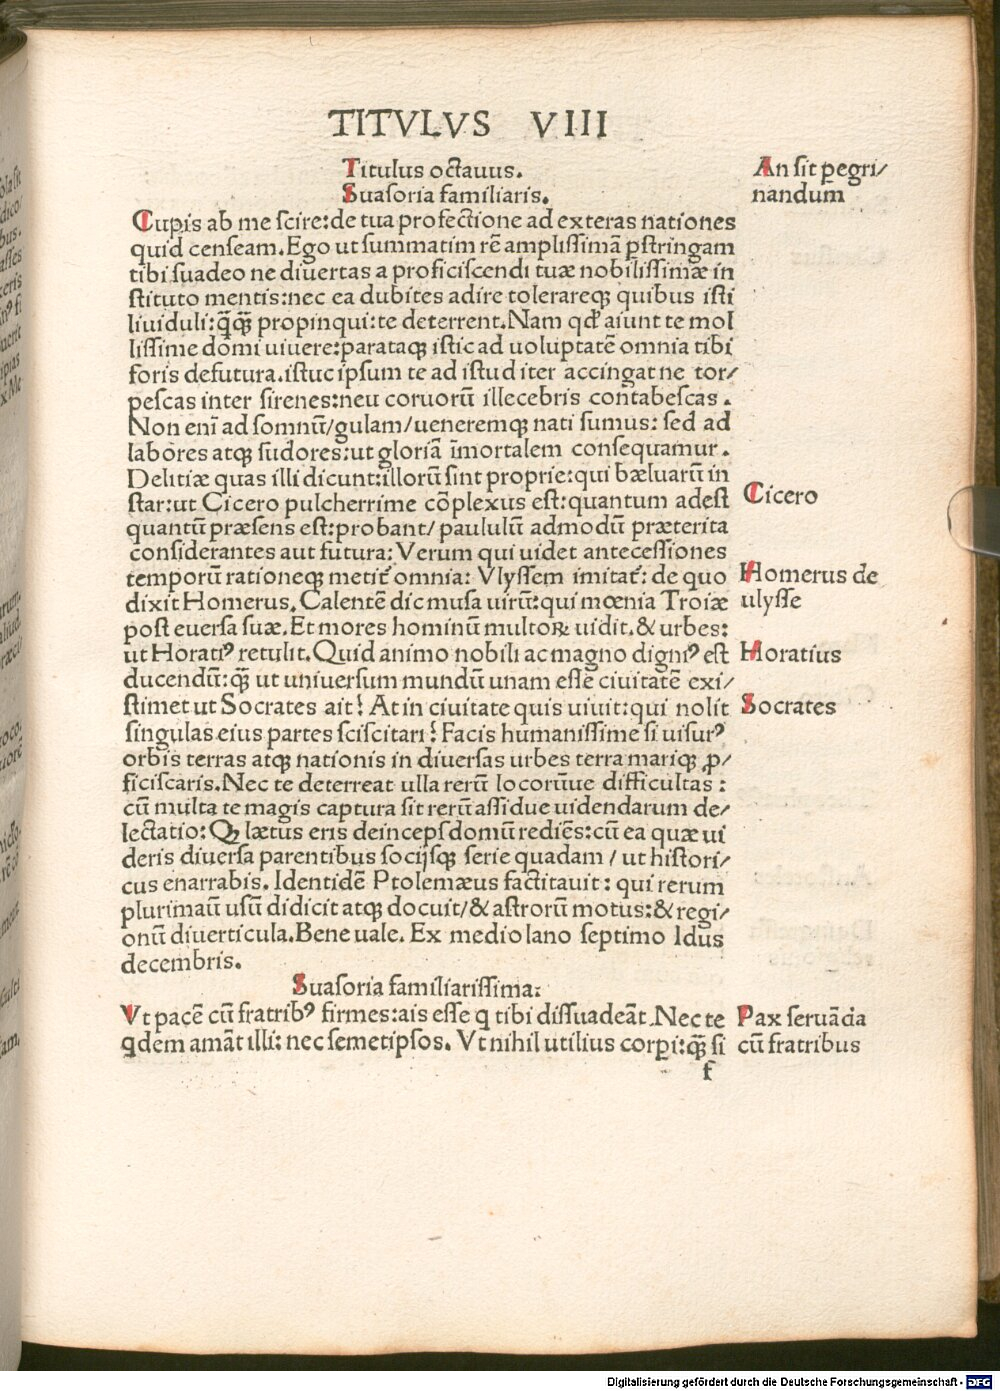 TITVLVS VIII
Titulus octauus.
Suasoria familiaris.
An sit p̱egri/
nandum
Cupis ab me scire: de tua profectione ad exteras nationes
quid censeam. Ego ut summatim rē amplissimā p̱stringam
tibi suadeo ne diuertas a proficiscendi tuæ nobilissimæ in
stituto mentis: nec ea dubites adire tolerareqꝫ quibus isti
liuiduli: qq̄ꝫ propinqui: te deterrent. Nam qđ aiunt te mol
lissime domi uiuere: parataqꝫ istic ad uoluptatē omnia tibi
foris defutura. istuc ipsum te ad istud iter accingat ne tor/
pescas inter sirenes: neu coruorū illecebris contabescas.
Non eni̅ ad somnū/gulam/ueneremqꝫ nati sumus: sed ad
labores atqꝫ sudores: ut gloriā i̅mortalem consequamur.
Delitiæ quas illi dicunt: illorū sint proprie: qui bæluarū in
star: ut Cicero pulcherrime cōplexus est: quantum adest
Cicero
quantū præsens est: probant/ paululū admodū præterita
considerantes aut futura: Verum qui uidet antecessiones
temporū rationeqꝫ metit᷑ omnia: Vlyssem imitat᷑: de quo
Homerus de
dixit Homerus. Calentē dic musa uirū: qui mœnia Troiæ
ulysse
post euersa suæ. Et mores hominū multoꝝ uidit. & urbes:
ut Horatiꝰ retulit. Quid animo nobili ac magno digniꝰ est
Horatius
ducendū: qꝫ̄ ut uniuersum mundū unam esse ciuitatē exi/
stimet ut Socrates ait? At in ciuitate quis uiuit: qui nolit
Socrates
singulas eius partes sciscitari? Facis humanissime si uisurꝰ
orbis terras atqꝫ nationis in diuersas urbes terra mariqꝫ ꝓ/
ficiscaris. Nec te deterreat ulla rerū locorūue difficultas:
cū multa te magis captura sit rerū assidue uidendarum de/
lectatio: Qꝫ lætus eris deinceps domū rediēs: cū ea quæ ui
deris diuersa parentibus socijsqꝫ serie quadam / ut histori/
cus enarrabis. Identidē Ptolemæus factitauit: qui rerum
plurimaū usū didicit atqꝫ docuit/ & astrorū motus: & regi/
onū diuerticula. Bene uale. Ex mediolano septimo Idus
decembris.
Suasoria familiarissima:
Vt pacē cū fratribꝰ firmes: ais esse q tibi dissuadeāt. Nec te
Pax seruāda
qdem amāt illi: nec semetipsos. Vt nihil utilius corp̱i: qꝫ̄ si
cū fratribus
f
Digitalisierung gefördert durch die Deutsche Forschungsgemeinschaft - DFG